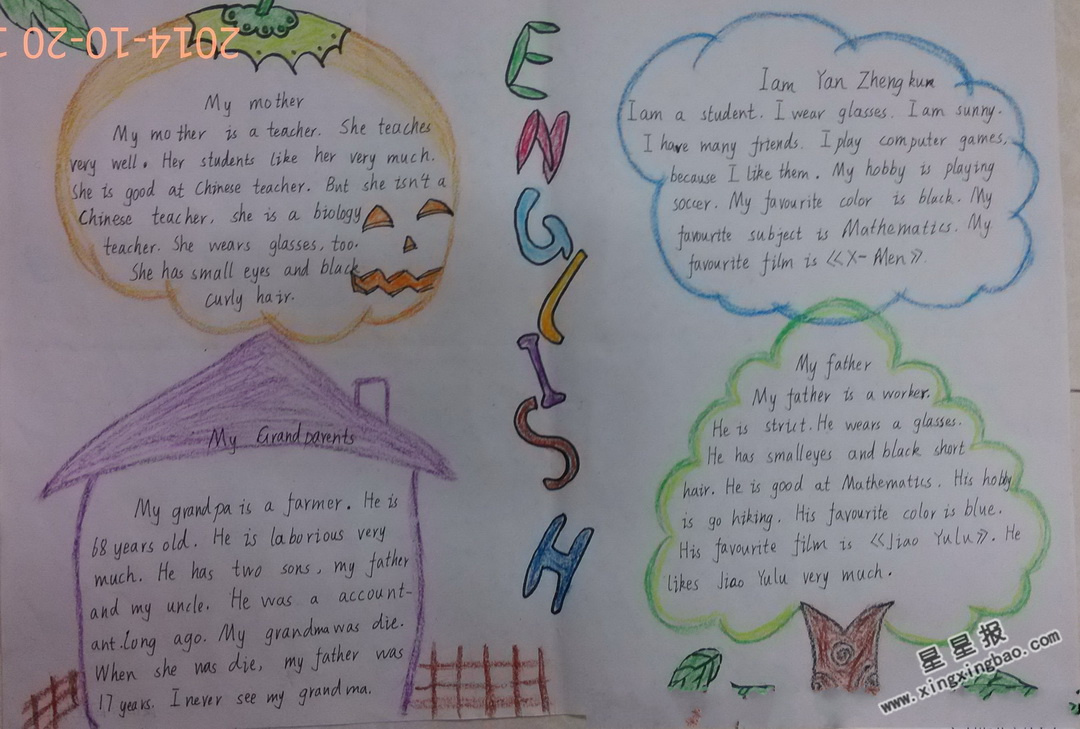 2014-10-20 1
My mother
My mother is a teacher. She teaches
very well. Her students like her very much.
She is good at Chinese teacher. But she isn't a
Chinese teacher, she is a biology
teacher. She wears glasses, too.
She has small eyes and black
curly hair.
My Grandparents
My grandpa is a farmer. He is
68 years old. He is laborious very
much. He has two sons, my father
and my uncle. He was a account-
ant.long ago. My grandma was die.
When she was die, my father was
17 years. I never see my grandma.
ENGLISH
I am Yan Zhengkun
I am a student. I wear glasses. I am sunny.
I have many friends. I play computer games,
because I like them. My hobby is playing
soccer. My favourite color is black. My
favourite subject is Mathematics. My
favourite film is 《X-Men》.
My father
My father is a worker.
He is strict. He wears a glasses.
He has smalleyes and black short
hair. He is good at Mathematics. His hobby
is go hiking. His favourite color is blue.
His favourite film is 《Jiao Yulu》. He
likes Jiao Yulu very much.
星星报
www.xingxingbao.com